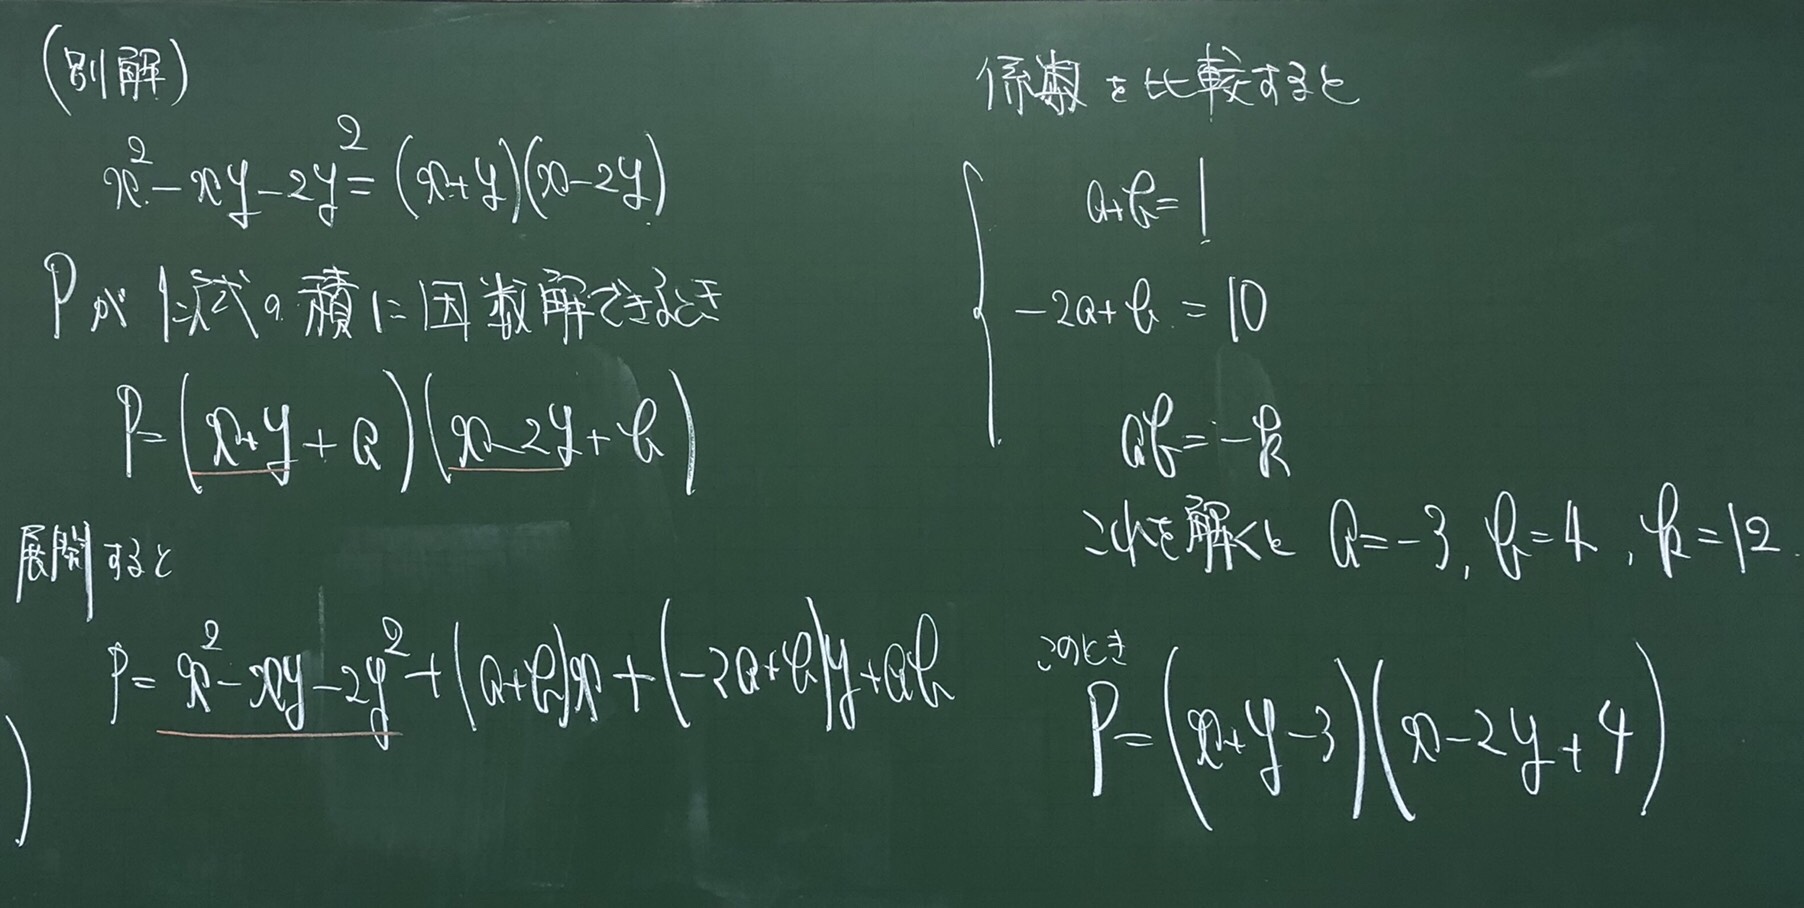 (別解)
x²-xy-2y²=(x+y)(x-2y)
Pが1次式の積に因数分解できるとき
P=(x+y+a)(x-2y+b)
展開すると
P=x²-xy-2y²+(a+b)x+(-2a+b)y+ab
)
係数を比較すると
a+b=1
-2a+b=10
ab=-k
これを解くと a=-3, b=4, k=12.
このとき
P=(x+y-3)(x-2y+4)